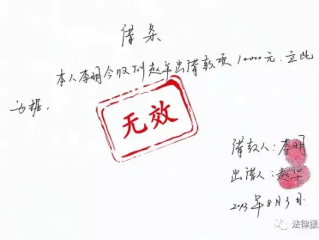 借条
本人李明今收到赵华出借款项10000元.立此
为据.
无效
借款人:李明
出借人:赵华
2013年8月3日
法律援